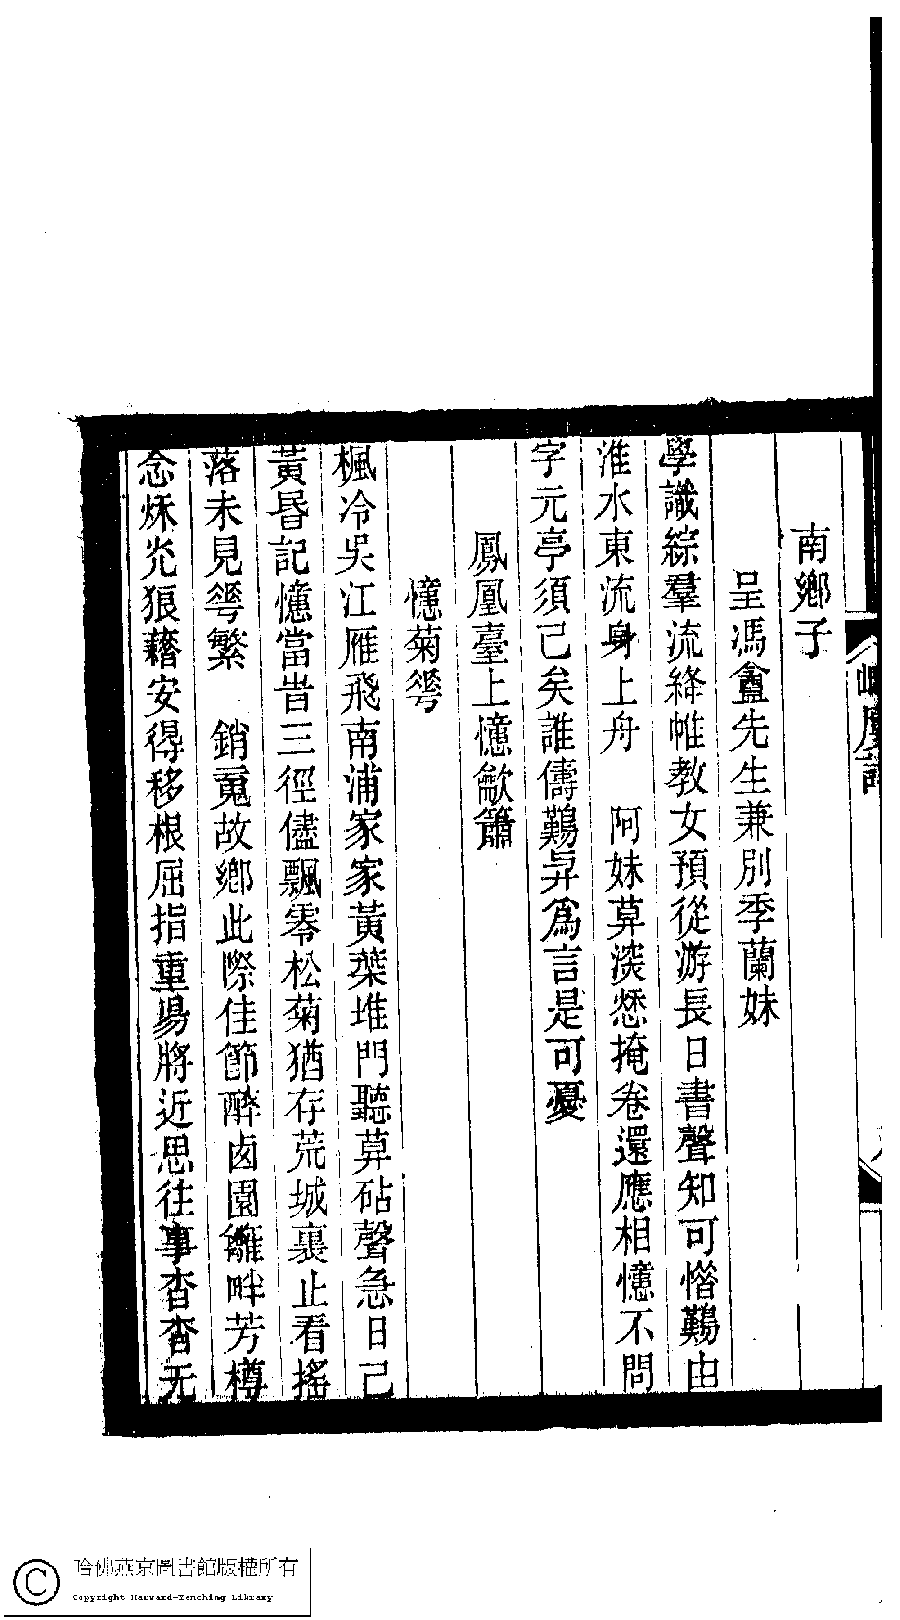 南鄉子
呈馮盦先生兼別季蘭妹
學識綜羣流絳帷教女預從游長日書聲知可惜囏由
淮水東流身上舟　阿妹莫淡愁掩卷還應相憶不問
字元亭須已矣誰儔囏昇爲言是可憂
鳳凰臺上憶歈簫
憶菊蕚
楓冷吳江雁飛南浦家家黃葉堆門聽莫砧聲急日已
黃昏記憶當昔三徑儘飄零松菊猶存荒城裏止看搖
落未見蕚繁　銷䰟故鄉此際佳節醉卤園籬畔芳樽
念烁灮狼藉安得移根屈指重昜將近思往事杳杳无
哈佛燕京圖書館版權所有
Copyright Harvard-Yenching Library